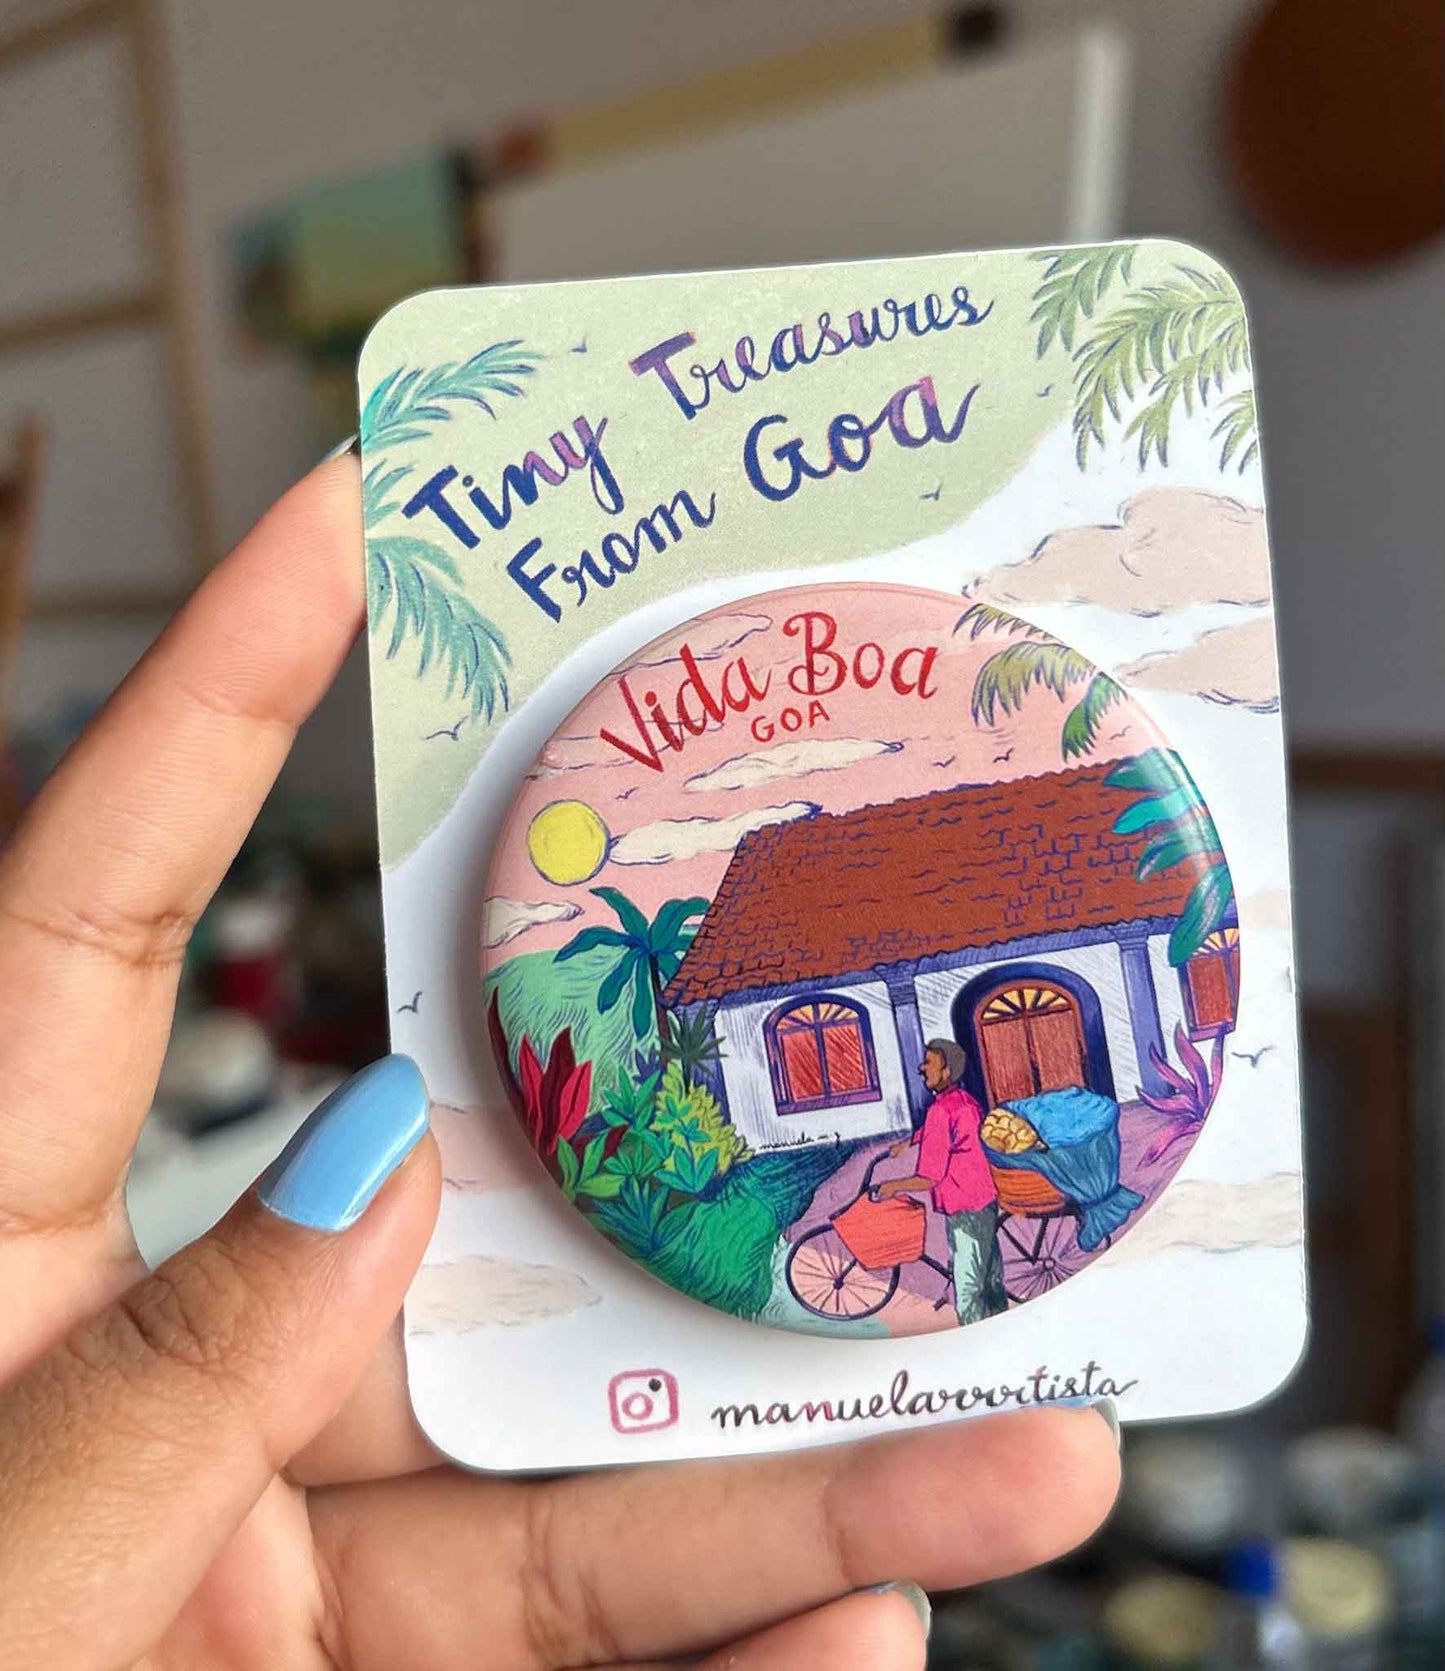 Tiny Treasures
From Goa
Vida Boa
GOA
manuelarrrtista